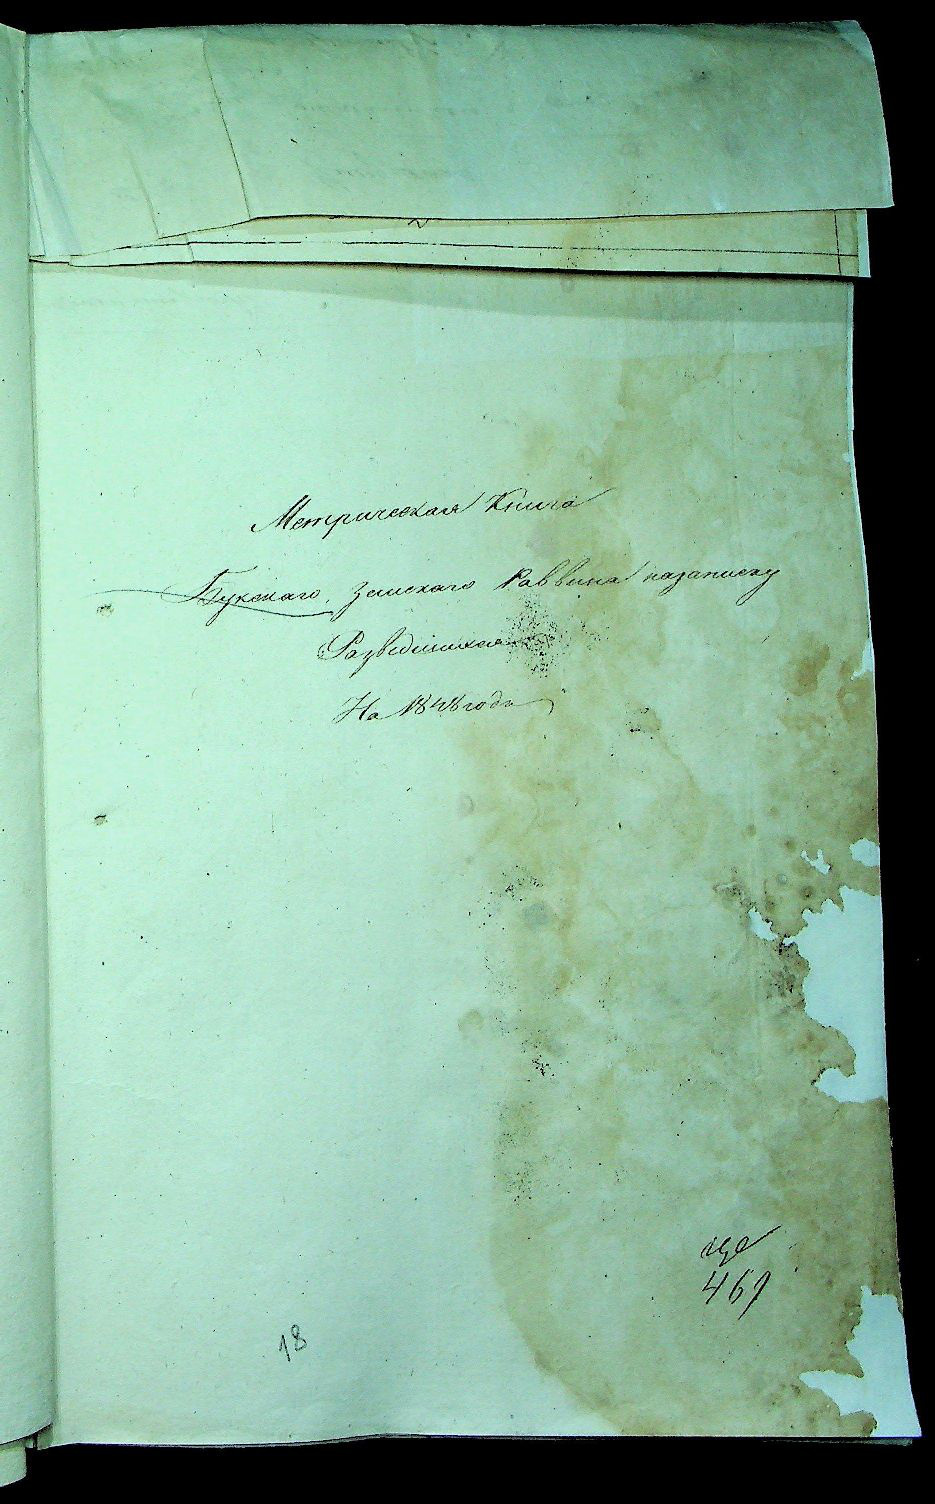 Метрическая Книга
Букскаго, Земскаго Раввина назаписку
Разведшихся
На 1848 годъ
469
18